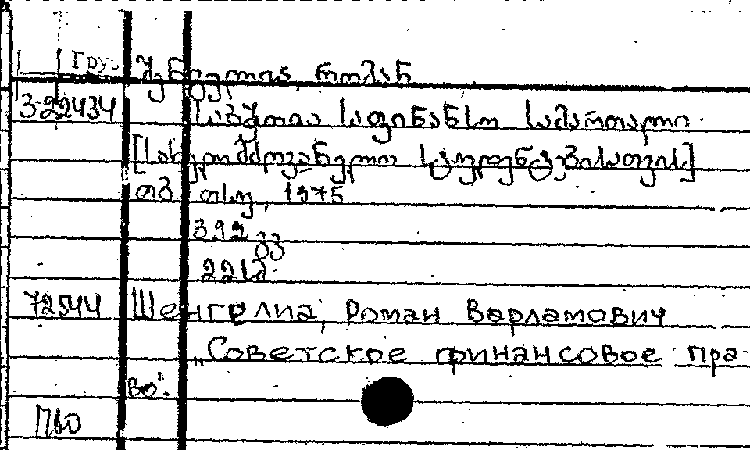 Груз
შენგელია, რომან
3-22434 საბჭოთა საფინანსო სამართალი
[სახელმძღვანელო სტუდენტებისათვის]
თბ. თსუ, 1975
392 გვ
221გ.
72544 Шенгелиа, Роман Варламович
„Советское финансовое пра
во".